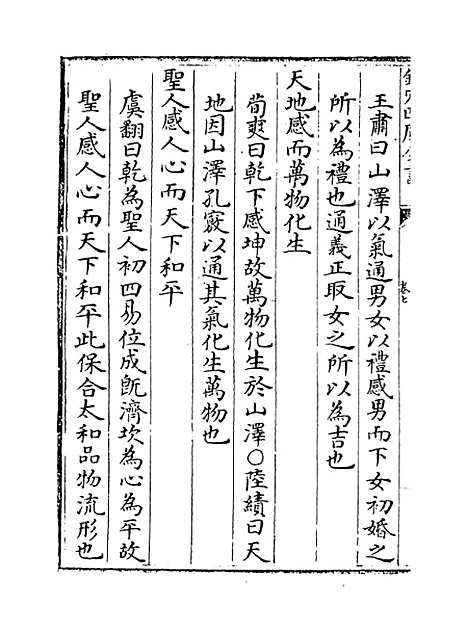 王肅曰山澤以氣通男女以禮感男而下女初婚之
所以為禮也通義正取女之所以為吉也
天地感而萬物化生
荀爽曰乾下感坤故萬物化生於山澤○陸績曰天
地因山澤孔竅以通其氣化生萬物也
聖人感人心而天下和平
虞翻曰乾為聖人初四易位成旣濟坎為心為平故
聖人感人心而天下和平此保合太和品物流形也
卷七